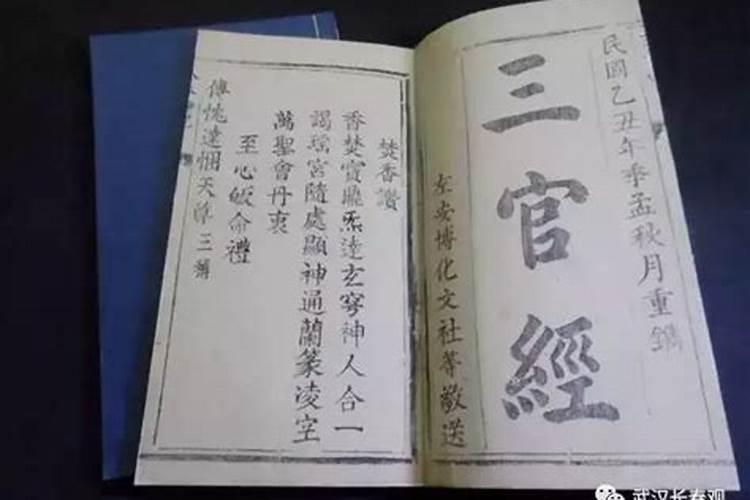 民國乙丑年季孟秋月重鐫
三官經
左安博化文社等敬送
焚香讚
香焚寶鼎炁達玄穹神人合一
謁瑶宮隨處顯神通蘭篆凌空
萬聖會丹衷
至心皈命禮
傳忱達悃天尊三稱
武汉长春观